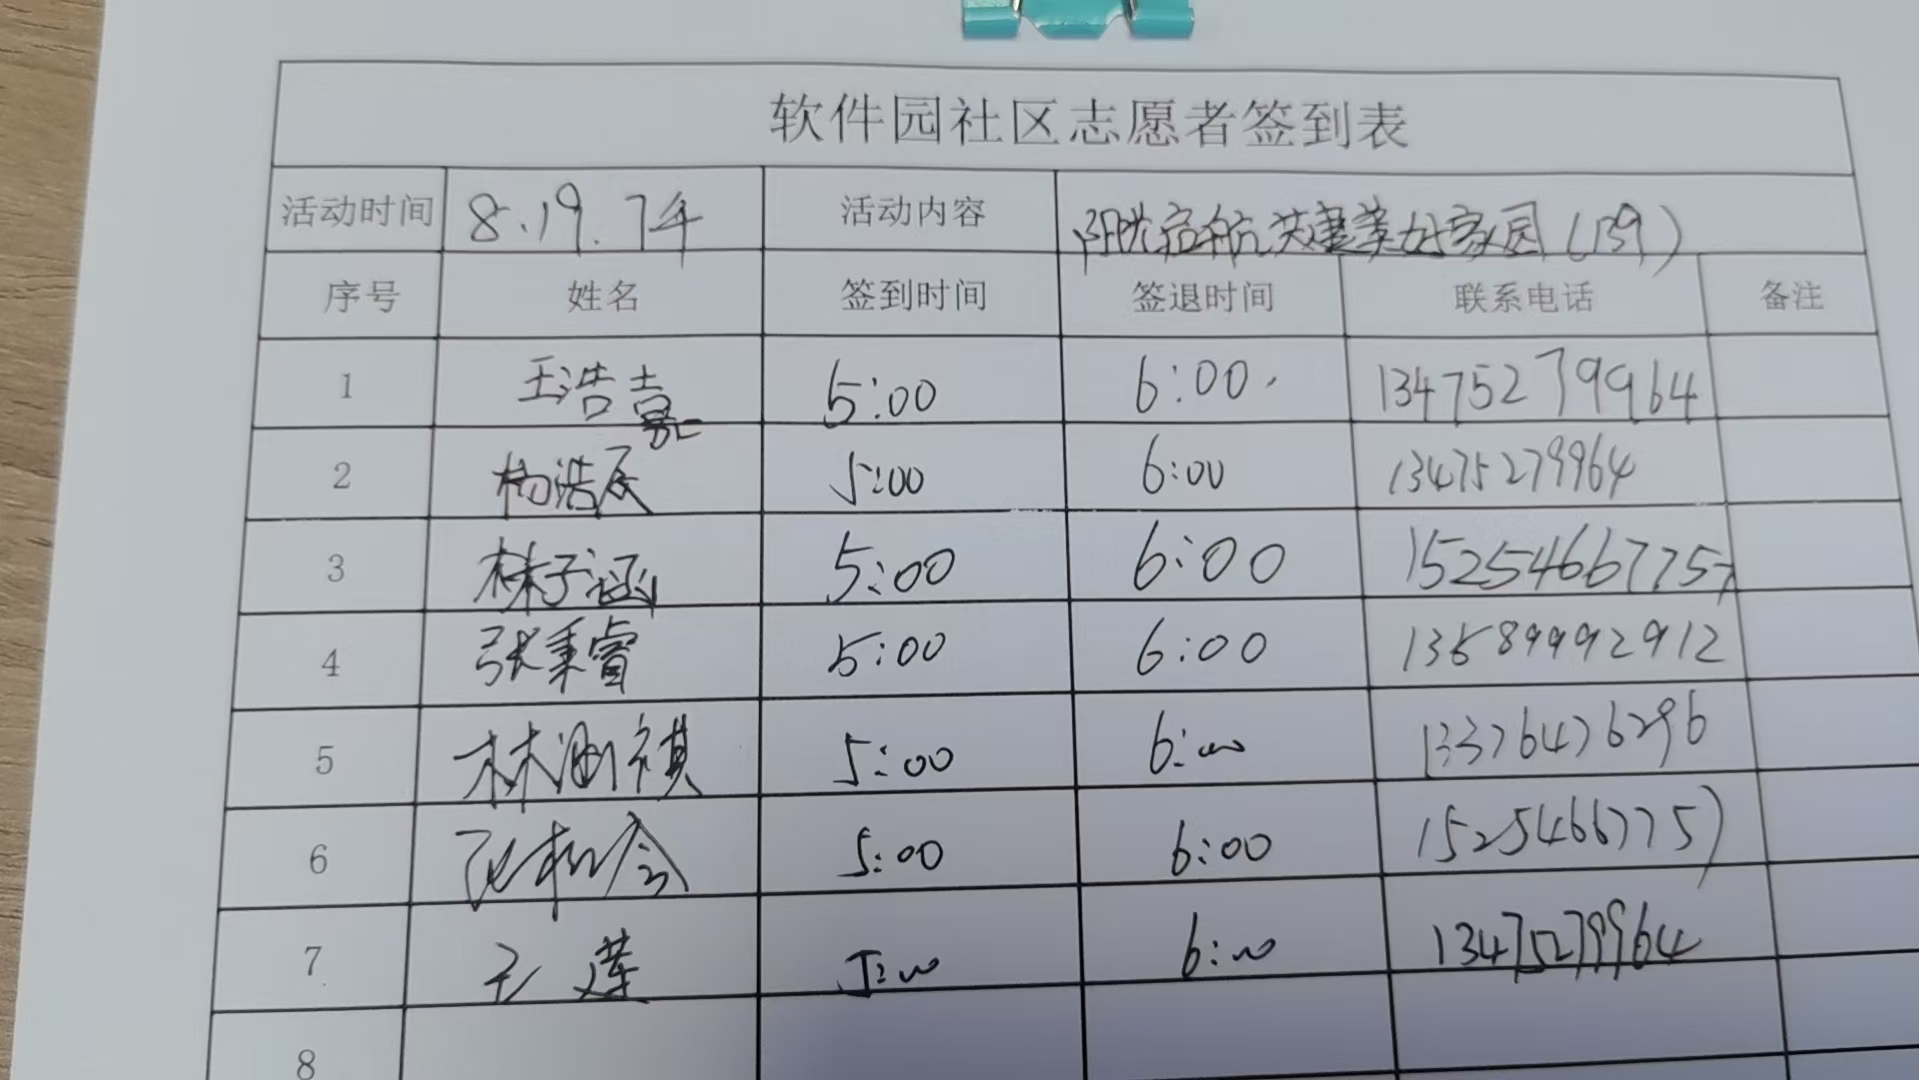 软件园社区志愿者签到表
活动时间 8.19.下午 活动内容 阳光启航 共建美好家园(139)
序号 姓名 签到时间 签退时间 联系电话 备注
1 王浩嘉 5:00 6:00 13475279964
2 杨浩辰 5:00 6:00 13475279964
3 林子涵 5:00 6:00 15254667757
4 张秉睿 5:00 6:00 13589992912
5 5:00 6:00 13376476296
6 5:00 6:00 15254667757
7 王莲 5:00 6:00 13475279964
8